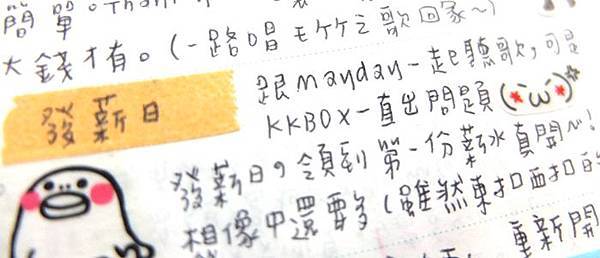 簡單。Than
大錢才有。(一路唱ㄜㄎㄎ之歌回家~)
發薪日
跟mayday一起聽歌,可是
KKBOX一直出問題
發薪日,領到第一份薪水真開心!
想像中還要多(雖然東扣西扣的
重新開